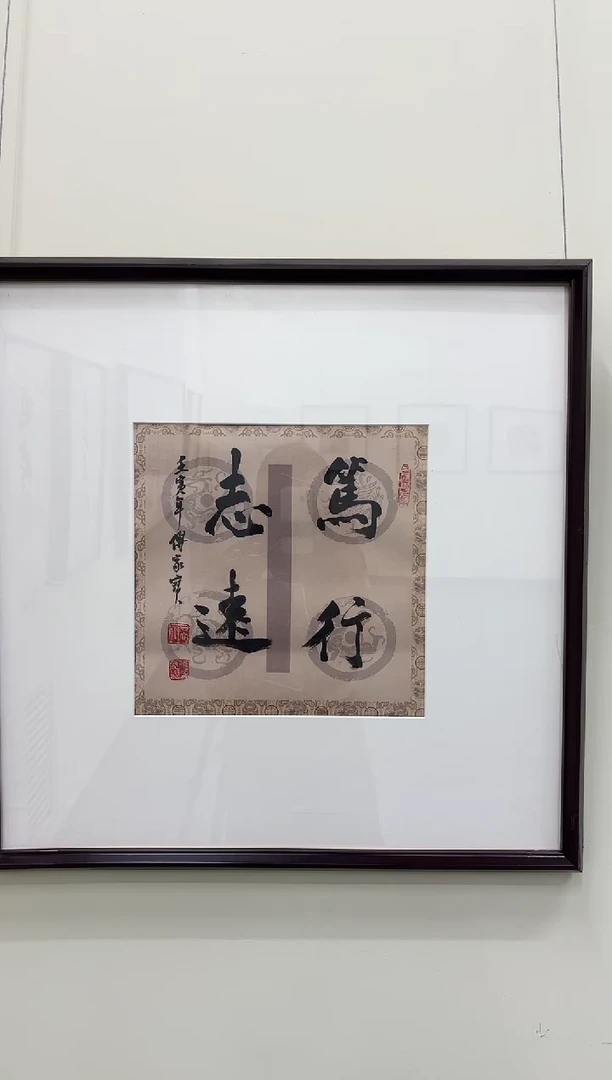 篤行
志遠
壬寅年傅家寶